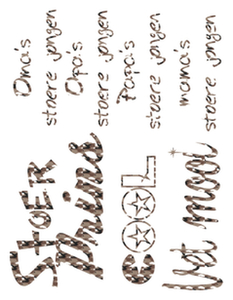 SToER
COOL
Vet mooi
Oma's
stoere jongen
Opa's
stoere jongen
Papa's
stoere jongen
mama's
stoere jongen